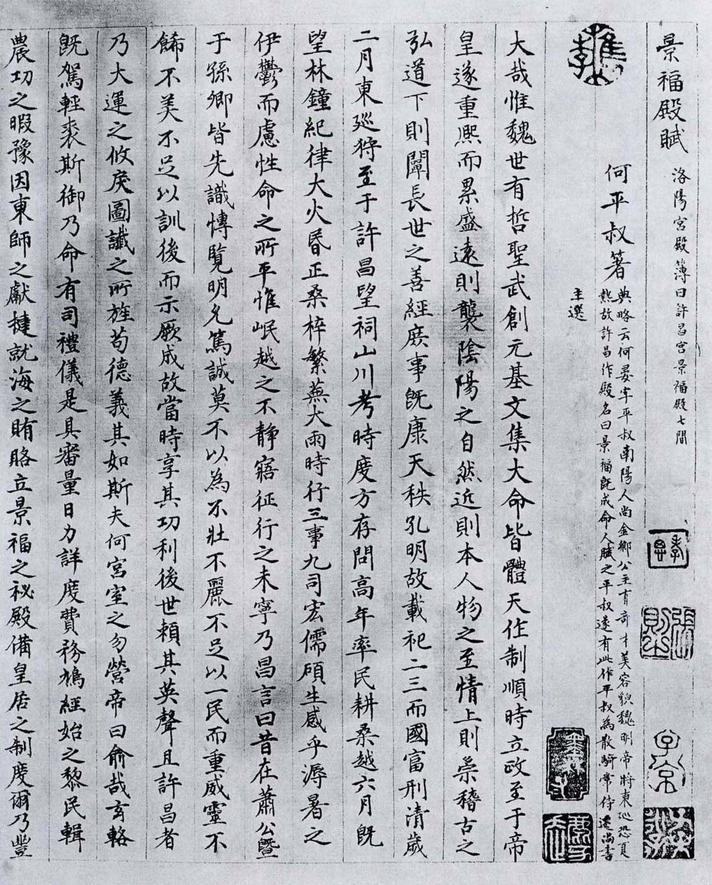 景福殿賦
洛陽宮殿簿曰許昌宮景福殿七間
何平叔著
典略云何晏字平叔南陽人尚金鄉公主有奇才美容貌魏明帝將東巡恐夏
熱故許昌作殿名曰景福既成命人賦之平叔遂有此作平叔為散騎常侍遷尚書
主選
大哉惟魏世有哲聖武創元基文集大命皆體天作制順時立政至于帝
皇遂重熙而累盛遠則襲陰陽之自然近則本人物之至情上則崇稽古之
弘道下則闡長世之善經庶事既康天秩孔明故載祀二三而國富刑清歲
二月東巡狩至于許昌望祠山川考時度方存問高年率民耕桑越六月既
望林鐘紀律大火昏正桑梓繁蕪大雨時行三事九司宏儒碩生感乎溽暑之
伊鬱而慮性命之所平惟岷越之不靜寤征行之未寧乃昌言曰昔在蕭公暨
于孫卿皆先識博覽明允篤誠莫不以為不壯不麗不足以一民而重威靈不
飾不美不足以訓後而示厥成故當時享其功利後世賴其英聲且許昌者
乃大運之攸戾圖讖之所旌苟德義其如斯夫何宮室之勿營帝曰俞哉玄輅
既駕輕裘斯御乃命有司禮儀是具審量日力詳度費務鳩經始之黎民輯
農功之暇豫因東師之獻捷就海之賄賂立景福之祕殿備皇居之制度爾乃豐